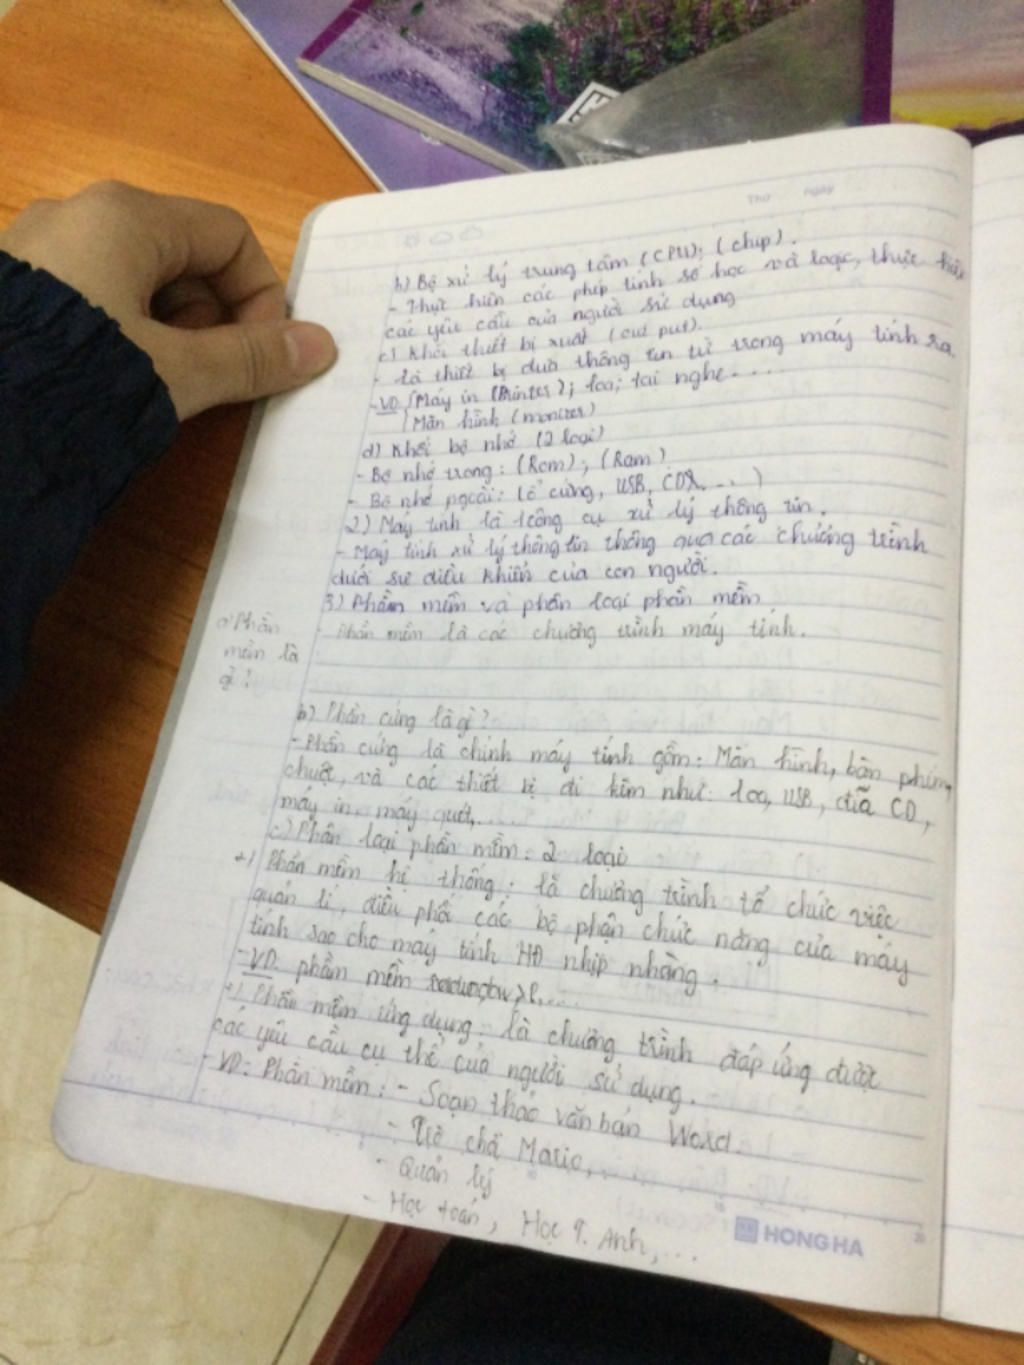 Thứ ngày
b) Bộ xử lý trung tâm (CPU); (chip).
- Thực hiện các phép tính số học và logic, thực hiện
các yêu cầu của người sử dụng
c) Khối thiết bị xuất (out put).
- là thiết bị đưa thông tin từ trong máy tính ra.
- VD: Máy in (Printer); loa; tai nghe....
Màn hình (moniter)
d) Khối bộ nhớ (2 loại)
- Bộ nhớ trong: (Rom); (Ram)
- Bộ nhớ ngoài: (ổ cứng, USB, CD, ...)
2) Máy tính là 1 công cụ xử lý thông tin.
- Máy tính xử lý thông tin thông qua các chương trình
dưới sự điều khiển của con người.
3) Phần mềm và phân loại phần mềm
a) Phần mềm là gì?
- Phần mềm là các chương trình máy tính.
b) Phần cứng là gì?
- Phần cứng là chính máy tính gồm: Màn hình, bàn phím,
chuột, và các thiết bị đi kèm như: loa, USB, đĩa CD,
máy in, máy quét,....
c) Phân loại phần mềm: 2 loại
+) Phần mềm hệ thống: là chương trình tổ chức việc
quản lí, điều phối các bộ phận chức năng của máy
tính sao cho máy tính HĐ nhịp nhàng.
- VD: phầm mềm
+) Phần mềm ứng dụng: là chương trình đáp ứng được
các yêu cầu cụ thể của người sử dụng.
- VD: Phần mềm: - Soạn thảo văn bản Word.
- Trò chơi Mario,...
- Quản lý
- Học toán, Học T. Anh,...
HONG HA